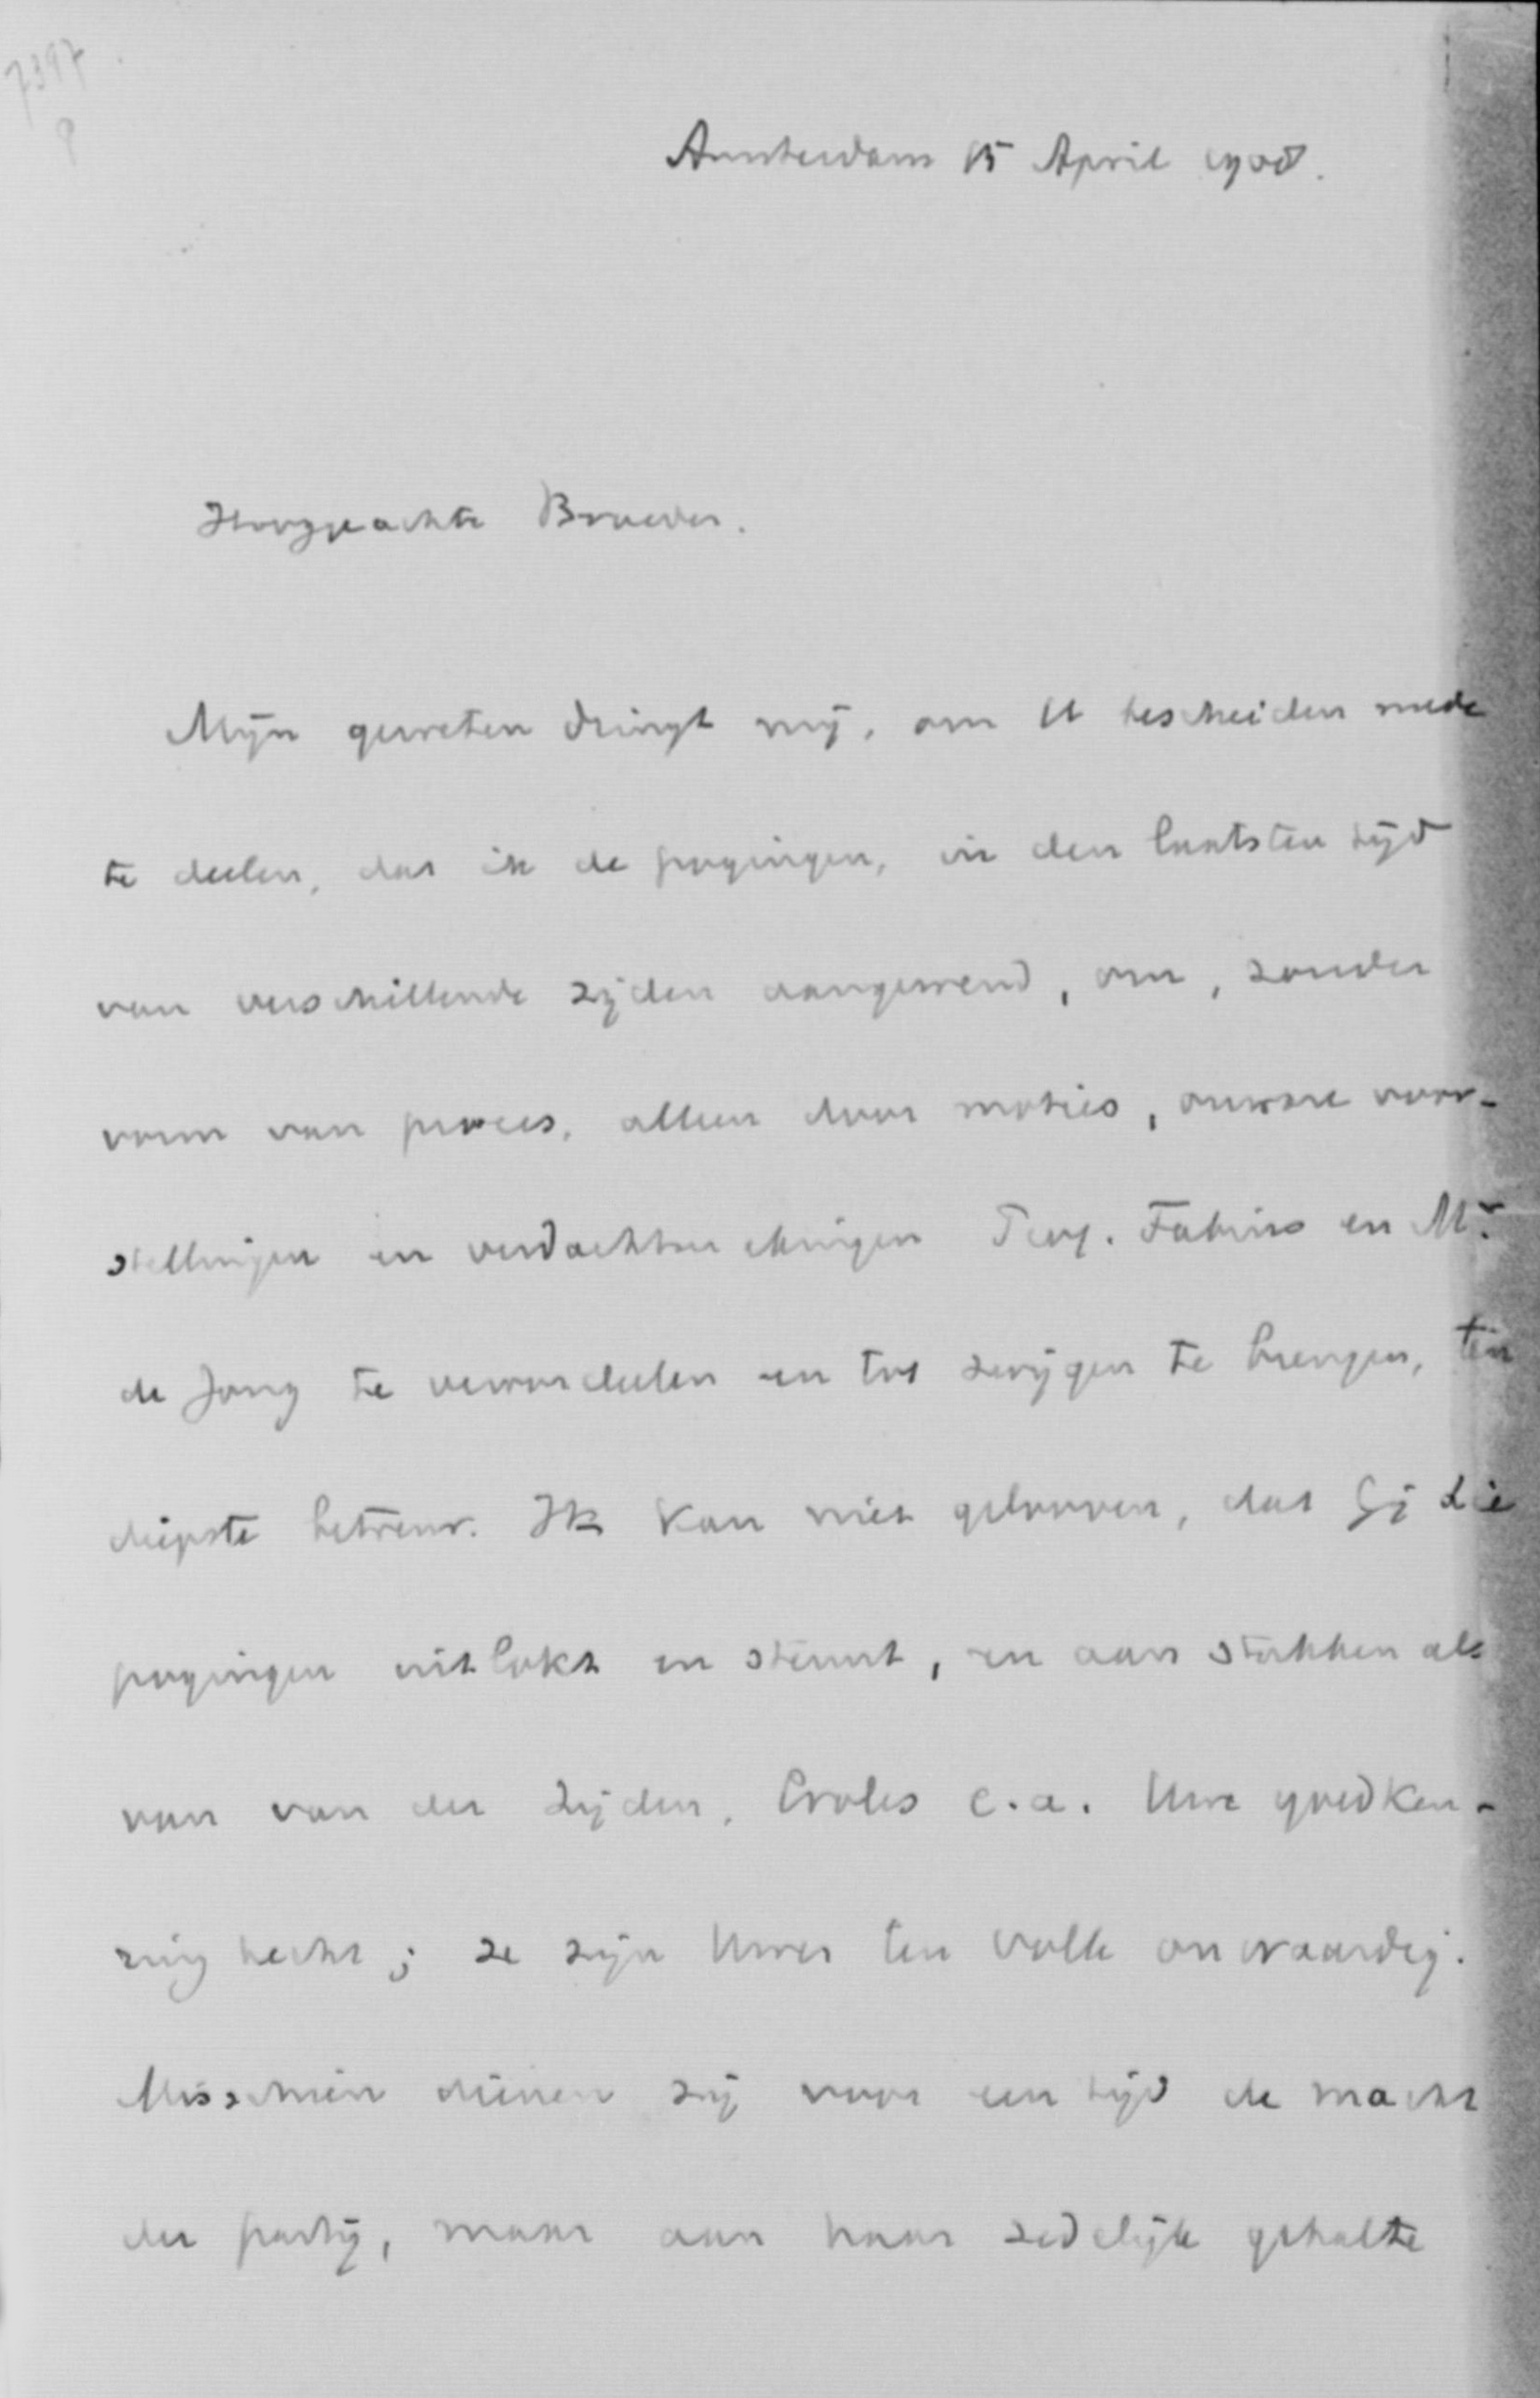 7397
P
Amsterdam 15 April 1908.
Hooggeachte Broeder.
Mijn geweten dringt mij, om U bescheiden mede
te deelen, dat ik de pogingen, in den laatsten tijd
van verschillende zijden aangewend, om, zonder
vorm van proces, alleen door moties, onware voor-
stellingen en verdachtmakingen Prof. Fabius en Mr.
de Jong te veroordeelen en tot zwijgen te brengen, ten
diepste betreur. Ik kan niet gelooven, dat Gij die
pogingen uitlokt en steunt, en aan stukken als
van van der Zijden, Croles e.a. Uwe goedkeu-
ring hecht; ze zijn Uwer ten volle onwaardig.
Misschien dienen zij voor een tijd de macht
der partij, maar aan haar zedelijk gehalte